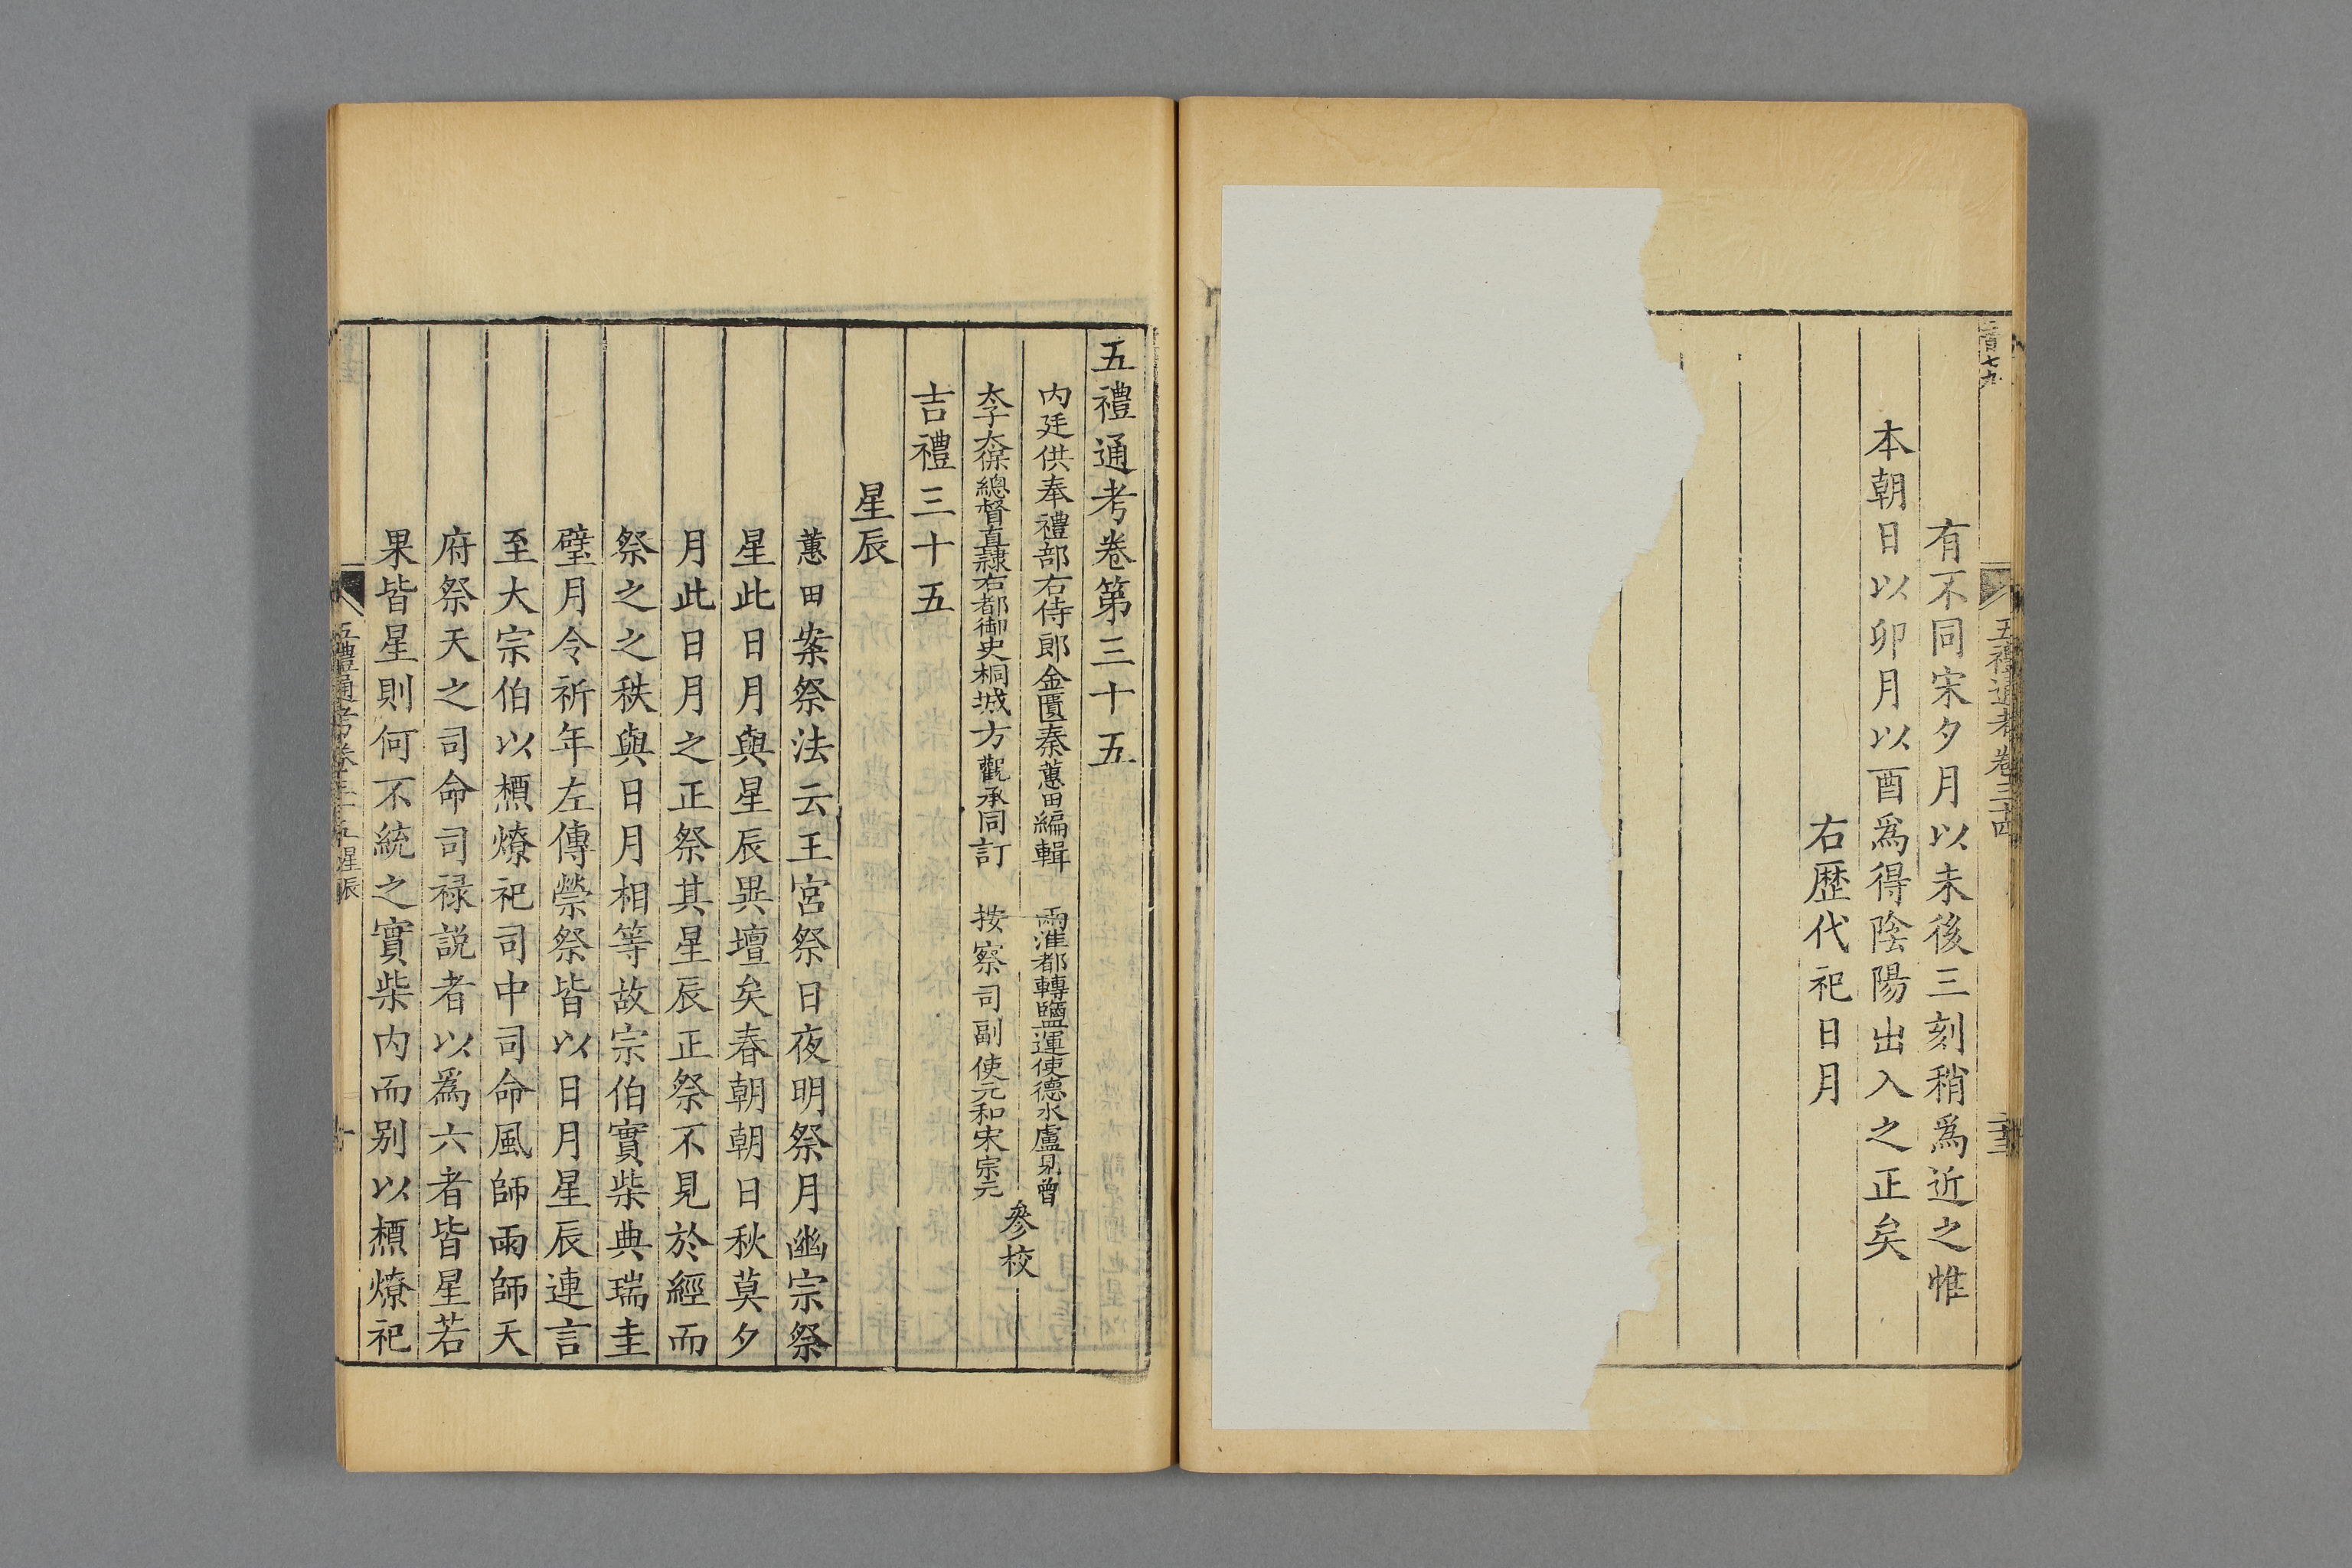 有不同宋夕月以未後三刻稍爲近之惟
本朝日以卯月以酉爲得陰陽出入之正矣
右歷代祀日月
五禮通考卷三十四
五禮通考卷第三十五
内廷供奉禮部右侍郎金匱秦蕙田編輯
兩淮都轉鹽運使德水盧見曾
太子太保總督直隷右都御史桐城方觀承同訂
按察司副使元和宋宗元
參校
吉禮三十五
星辰
蕙田案祭法云王宮祭日夜明祭月幽宗祭
星此日月與星辰異壇矣春朝朝日秋莫夕
月此日月之正祭其星辰正祭不見於經而
祭之之秩與日月相等故宗伯實柴典瑞圭
璧月令祈年左傳禜祭皆以日月星辰連言
至大宗伯以槱燎祀司中司命風師雨師天
府祭天之司命司禄説者以爲六者皆星若
果皆星則何不統之實柴内而别以槱燎祀
五禮通考卷三十五 星辰